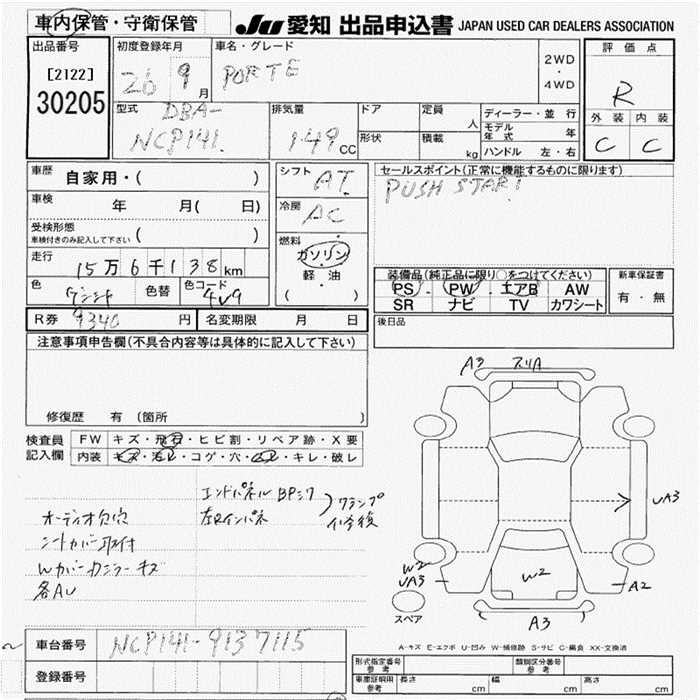 車内保管・守衛保管
JU 愛知 出品申込書 JAPAN USED CAR DEALERS ASSOCIATION
出品番号
[2122]
30205
初度登録年月
26 9月
車名・グレード
PORTE
2WD
・
4WD
評価点
R
外装 内装
C C
型式
DBA-
NCP141
排気量
1.49cc
ドア
形状
定員
人
積載
kg
ディーラー・並行
モデル年式 年
ハンドル 左・右
車歴
自家用・( )
車検
年 月( 日)
受検形態
車検付きのみ記入して下さい ( )
走行
15万6千138km
色
色替
色コード
4V9
シフト
AT
冷房
AC
燃料
ガソリン
・
軽・油
( )
セールスポイント(正常に機能するものに限ります)
PUSH START
装備品(純正品に限り○をつけてください)
PS・PW・エアB AW
SR ナビ TV カワシート
新車保証書
有・無
R券 9340 円
名変期限 月 日
後日品
注意事項申告欄(不具合内容等は具体的に記入して下さい)
修復歴 有 (箇所 )
検査員
記入欄
FW キズ・飛石・ヒビ割・リペア跡・X要
内装 キズ・汚レ・コゲ・穴・ムレ・キレ・破レ
エンドパネル BPシワ
左Rインパネ
クランプ
修復
オーディオ欠穴
シートカバー取付
Wカバーカシラーキズ
各AU
A3 スリA
UA3
W2
UA3
W2
A2
A3
スペア
A-キズ E-エクボ U-凹み W-補修跡 S-サビ C-腐食 XX-交換済
車台番号
NCP141-9137115
登録番号
形式指定番号
参考
類別区分番号
参考
車庫証明用
参考
長さ cm
幅 cm
高さ cm